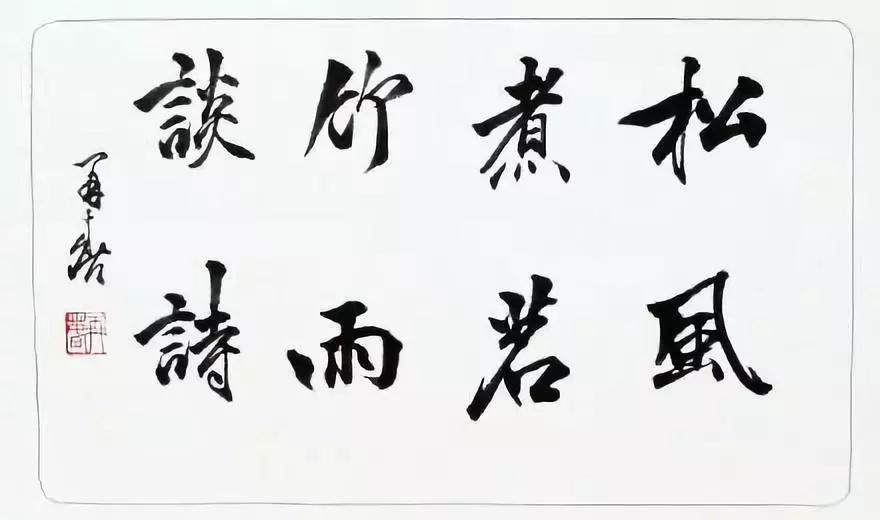 松風
煮茗
竹雨
談詩